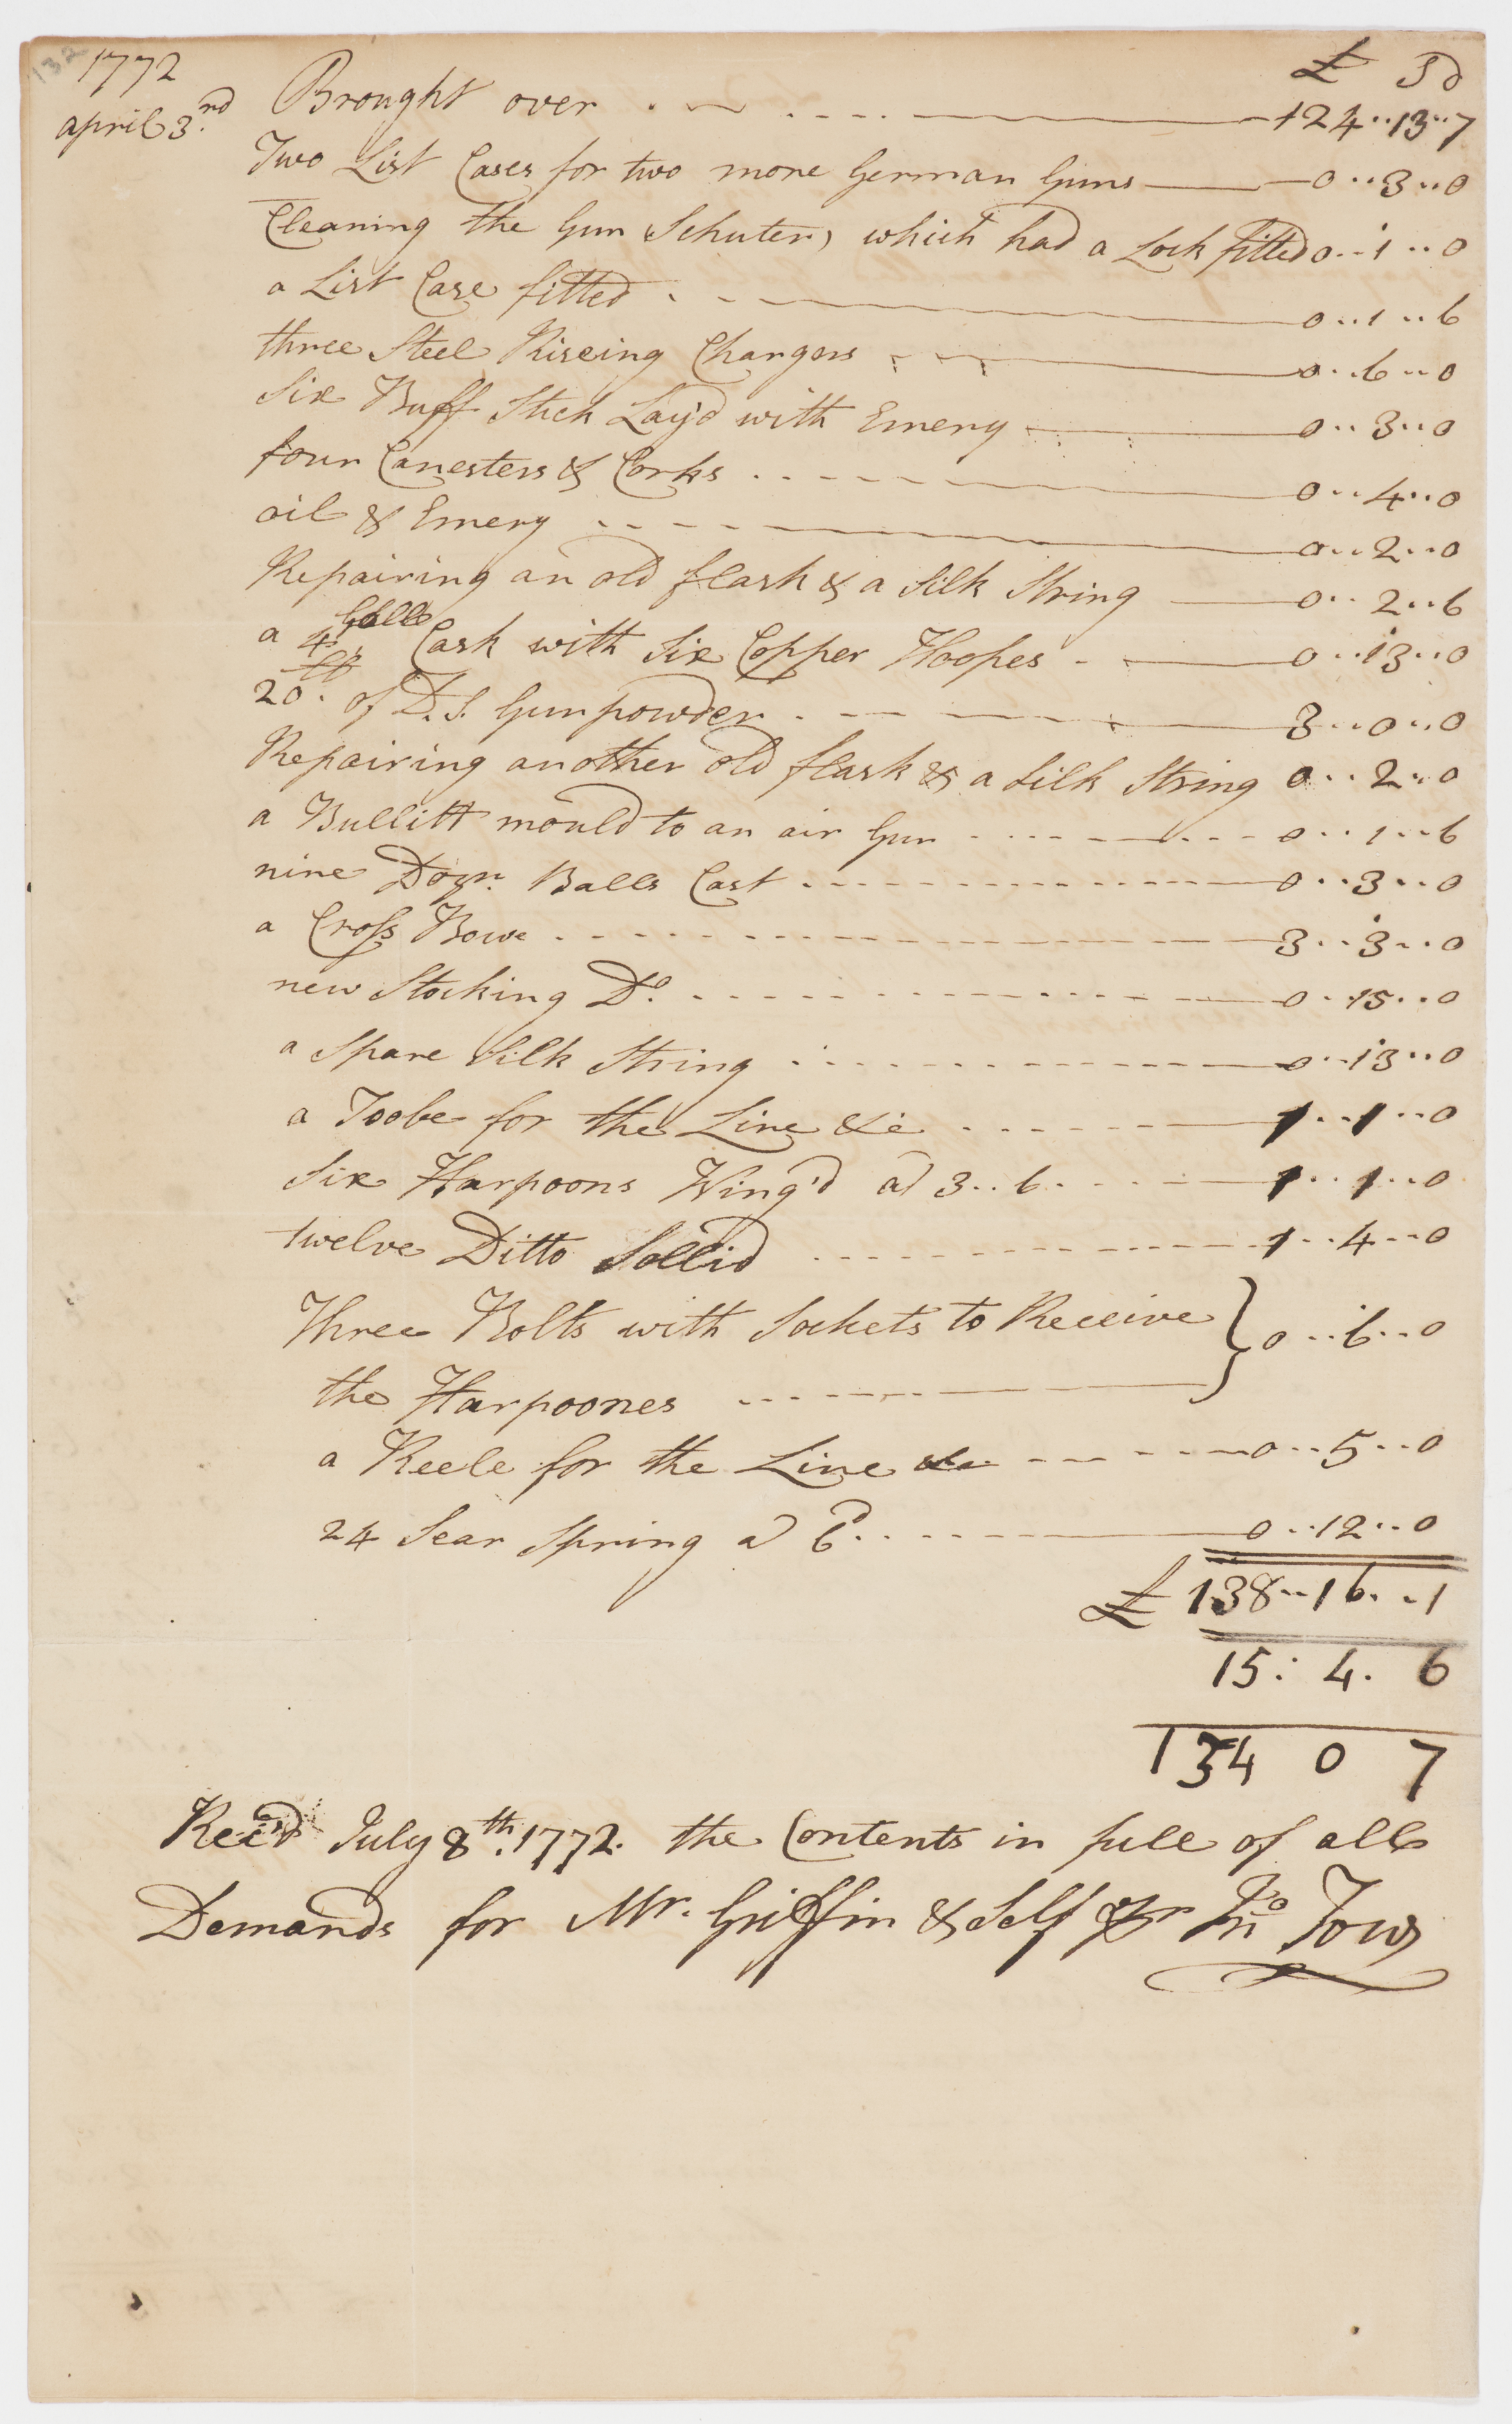 132
1772 £ S d
april 3.rd Brought over . ~ . . . . 124..13..7
Two List Cases for two more German Guns 0..3..0
Cleaning the Gun Schuter, which had a Lock fitted 0..1..0
a List Case fitted . . . 0..1..6
three Steel Riseing Chargers 0..6..0
Six Buff Stick Lay'd with Emery 0..3..0
four Canesters & Corks 0..4..0
oil & Emery 0..2..0
Repairing an old flask & a Silk String 0..2..6
a 4 Galle Cask with Six Copper Hoopes 0..13..0
20 lb. of D.S. Gunpowder 3..0..0
Repairing another old flask & a Silk String 0..2..0
a Bullitt mould to an air Gun 0..1..6
nine Dozn. Balls Cast 0..3..0
a Cross Bowe 3..3..0
new Stocking Do. 0..15..0
a Spare Silk String 0..13..0
a Toobe for the Line &c 1..1..0
Six Harpoons Wing'd a 3..6. 1..1..0
twelve Ditto Sollid 1..4..0
Three Bolts with Sockets to Receive } 0..6..0
the Harpoones
a Reele for the Line &c 0..5..0
24 Sear Spring a 6d. 0..12..0
£ 138..16..1
15: 4. 6
134 0 7
Rec'd July 8th. 1772. the Contents in full of all
Demands for Mr. Griffin & Self pr Jno Tow